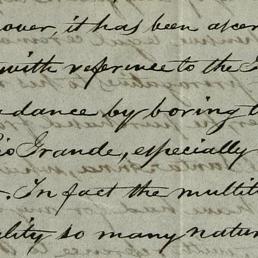 over, it has been ascer
with reference to the
dance by boring
Grande, especially
In fact the multit
ality so many natur